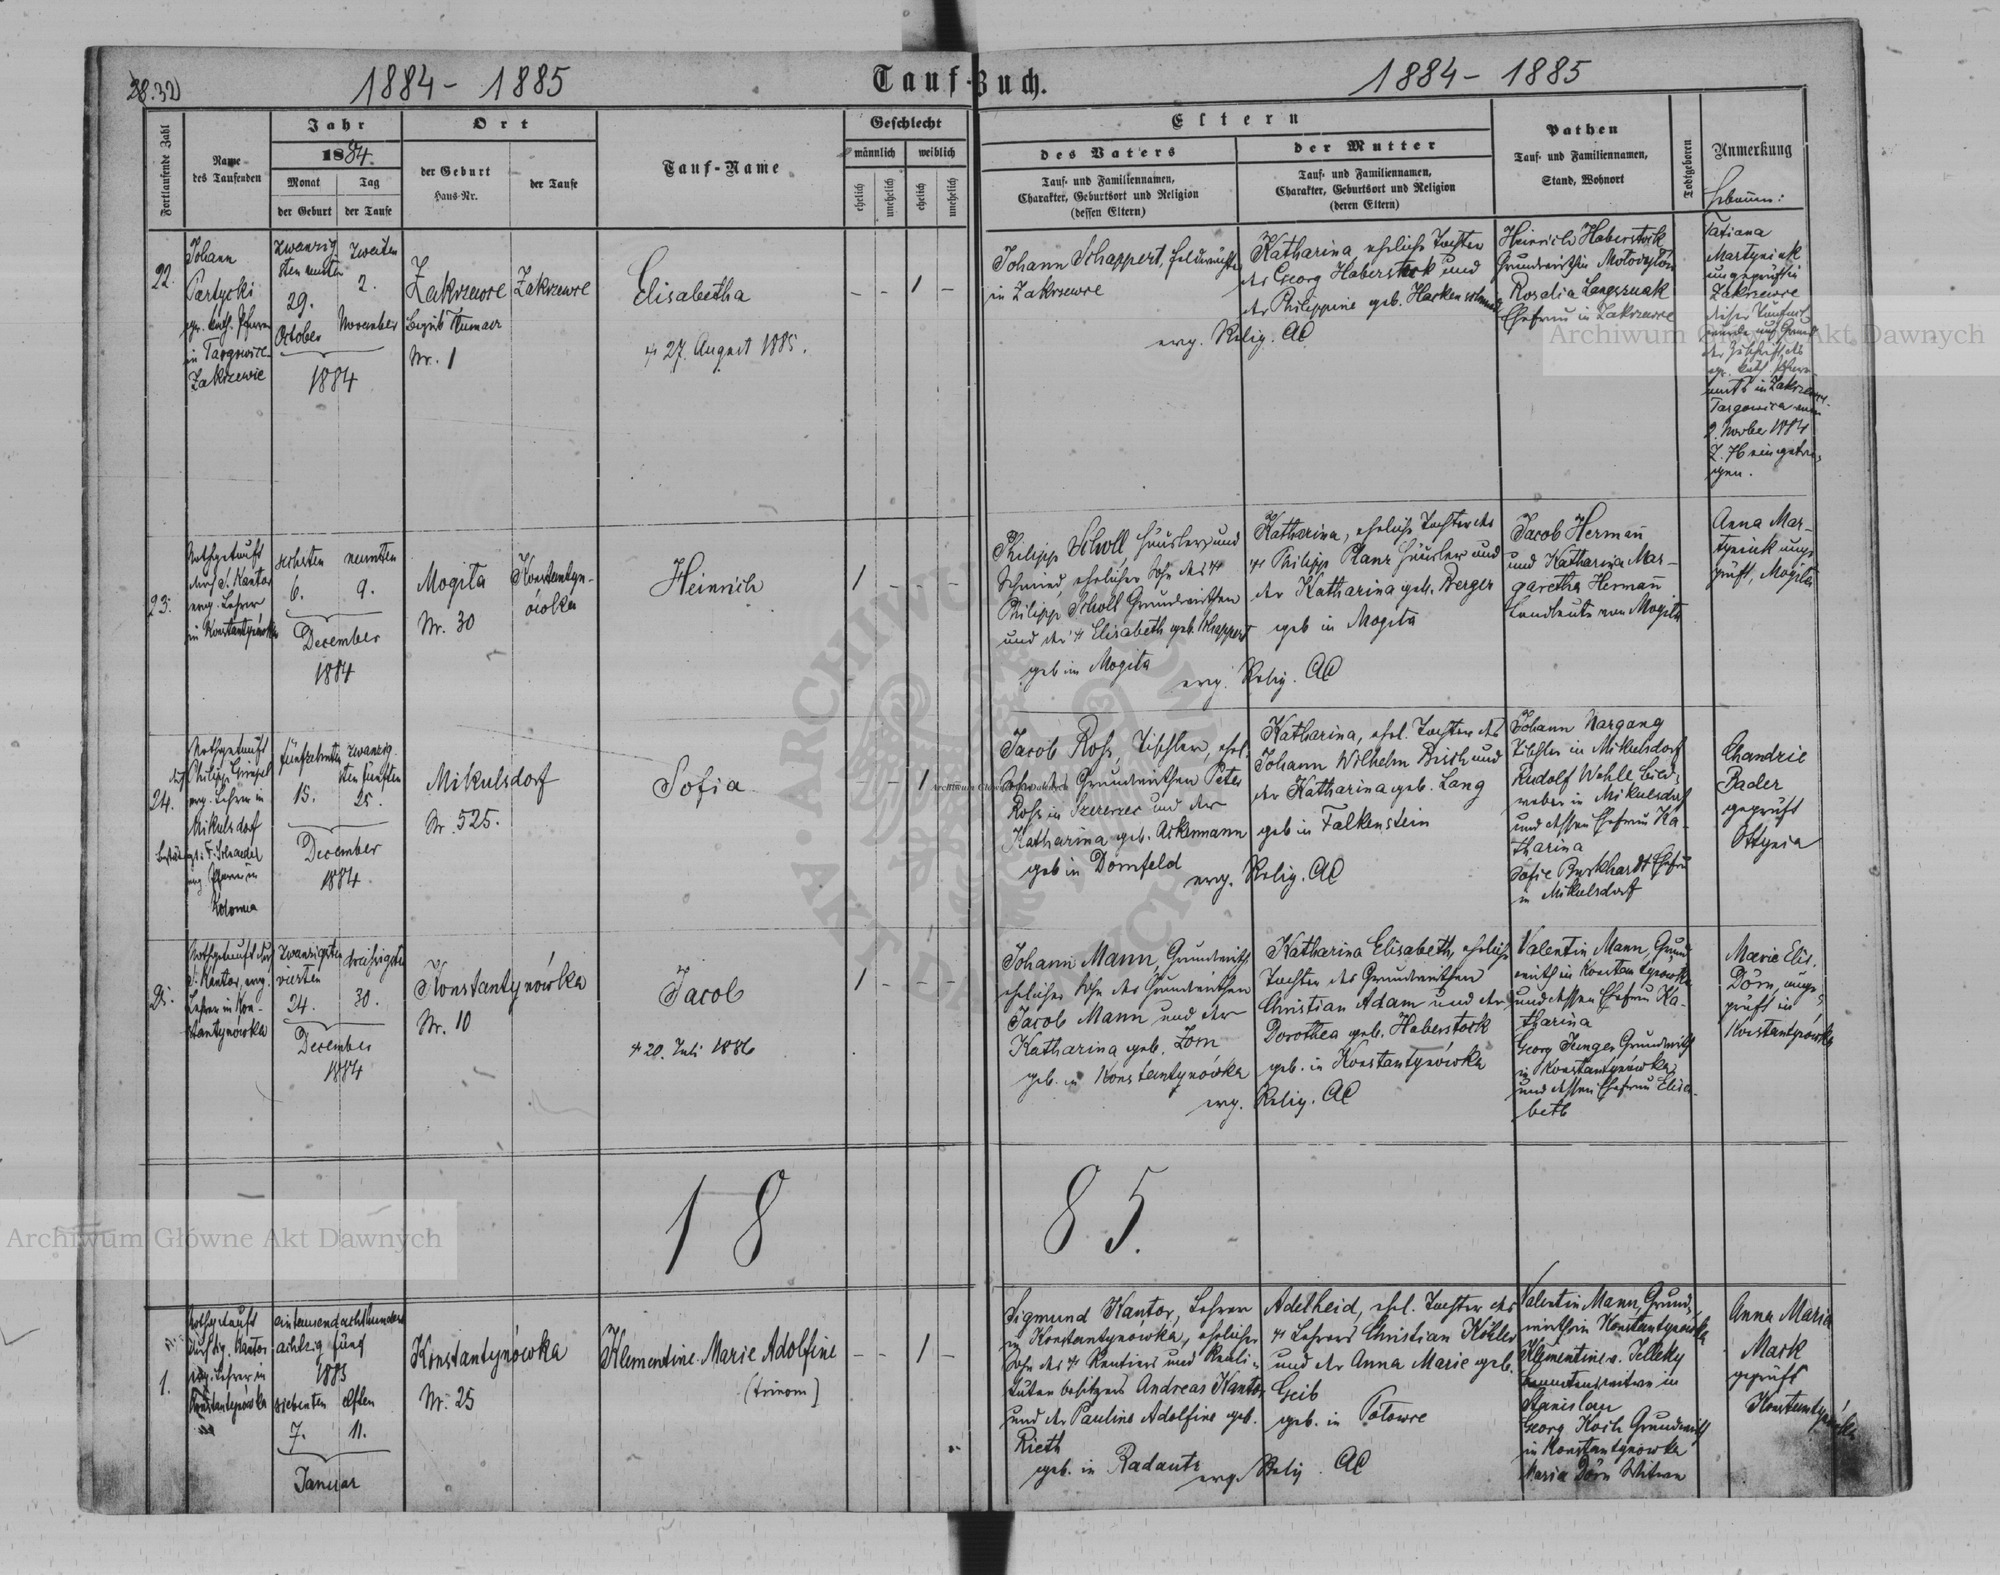 1884 - 1885
Tauf-Buch.
1884 - 1885
Fortlaufende Zahl
Name
des Taufenden
Jahr
1884.
Monat
Tag
der Geburt
der Taufe
Ort
der Geburt
Haus-Nr.
der Taufe
Tauf-Name
Geschlecht
männlich
weiblich
ehelich
unehelich
ehelich
unehelich
Eltern
des Vaters
Tauf- und Familiennamen,
Charakter, Geburtsort und Religion
(dessen Eltern)
der Mutter
Tauf- und Familiennamen,
Charakter, Geburtsort und Religion
(deren Eltern)
Pathen
Tauf- und Familiennamen,
Stand, Wohnort
Todtgeboren
Anmerkung
22.
Johann
Partycki
gr. kath. Pfarrer
in Targowica-
Zakrzewie
29.
October
Zweiten
2.
November
1884
Zakrzewce
Bezirk Tlumacz
Nr. 1
Zakrzewce
Elisabetha
27. August 1885.
- - 1 -
Johann Schappert,
in Zakrzewce
Katharina, eheliche Tochter
des Georg Haberstock und
der Philippine geb.
evg. Relig. AC
Heinrich Haberstock
Rosalia
Ehefrau in Zakrzewce
Tatiana
Martyniak
ungeprüft in
Zakrzewce
2. Novber 1884
Z. 76 eingetra-
gen.
23.
Nothgetauft
durch S. Kantor
evg. Lehrer
in Konstantynówka
sechsten
6.
neunten
9.
December
1884
Mogiła
Nr. 30
Konstantyn-
ówka
Heinrich
1 - - -
Philipp Scholl Häusler und
Schmied, ehelicher Sohn des
Philipp Scholl Grundwirthen
und der Elisabeth geb. Schappert
geb in Mogiła
Katharina, eheliche Tochter des
Philipp Planz Häusler und
der Katharina geb. Berger
geb in Mogiła
evg. Relig. AC
Jacob Herman̄
und Katharina Mar-
garetha Herman̄
Landleute von Mogiła
Anna Mar-
tyniuk unge-
prüft, Mogiła
24.
Nothgetauft
durch Philipp
evg. Lehrer in
Mikulsdorf
evg. Pfarrer in
Kolomea
fünfzehnten
15.
zwanzig
sten fünften
25.
December
1884.
Mikulsdorf
Nr. 525.
Sofia
- - 1
Jacob Rohs, Tischler, ehel.
Sohn des Grundwirthen Peter
Rohs in Szczerzec und der
Katharina geb. Ackermann
geb in Dornfeld
Katharina, ehel. Tochter des
Johann Wilhelm Bisch und
der Katharina geb. Lang
geb in Falkenstein
evg. Relig. AC
Johann Nargang
Tischler in Mikulsdorf
Rudolf Wohle
weber in Mikulsdorf
und dessen Ehefrau Ka-
tharina
Sofie Burkhardt Ehefrau
in Mikulsdorf
Bader
geprüft
Ottynia
25.
Nothgetauft durch
S. Kantor, evg.
Lehrer in Kon-
stantynówka
zwanzigsten
vierten
24.
dreißigsten
30.
December
1884
Konstantynówka
Nr. 10
Jacob
20. Juli 1886
1 - - -
Johann Mann, Grundwirth
ehelicher Sohn des Grundwirthen
Jacob Mann und der
Katharina geb. Zorn
geb. in Konstantynówka
Katharina Elisabeth, eheliche
Tochter des Grundwirthen
Christian Adam und der
Dorothea geb. Haberstock
geb. in Konstantynówka
evg. Relig. AC
Valentin Mann, Grund
wirth in Konstantynówka
und dessen Ehefrau Ka-
tharina
Georg Junger Grundwirth
in Konstantynówka
und dessen Ehefrau Elisa-
beth
Marie Elis.
Dörn, unge-
prüft in
Konstantynówka
1885.
1.
Nothgetauft
durch Sig. Kantor
evg. Lehrer in
Konstantynówka
eintausendachthundert
achtzig fünf
1885
siebenten
7.
elften
11.
Januar
Konstantynówka
Nr. 25
Klementine Marie Adolfine
(trinom)
- - 1 -
Sigmund Kantor, Lehrer
in Konstantynówka, ehelicher
Sohn des Rentiers und Reali-
täten besitzers Andreas Kantor
und der Pauline Adolfine geb.
Rieth
geb. in Radautz
Adelheid, ehel. Tochter des
Lehrers Christian Köhler
und der Anna Marie geb.
Geib
geb. in Połowce
evg. Relig. AC
Valentin Mann, Grund
wirth in Konstantynówka
Klementine v. Jelleky
Beamtenswitwe in
Stanislau
Georg Koch Grundwirth
in Konstantynowka
Maria Dörn Witwe
Anna Maria
Mark
geprüft
Konstantynówka
Archiwum Główne Akt Dawnych
Archiwum Główne Akt Dawnych